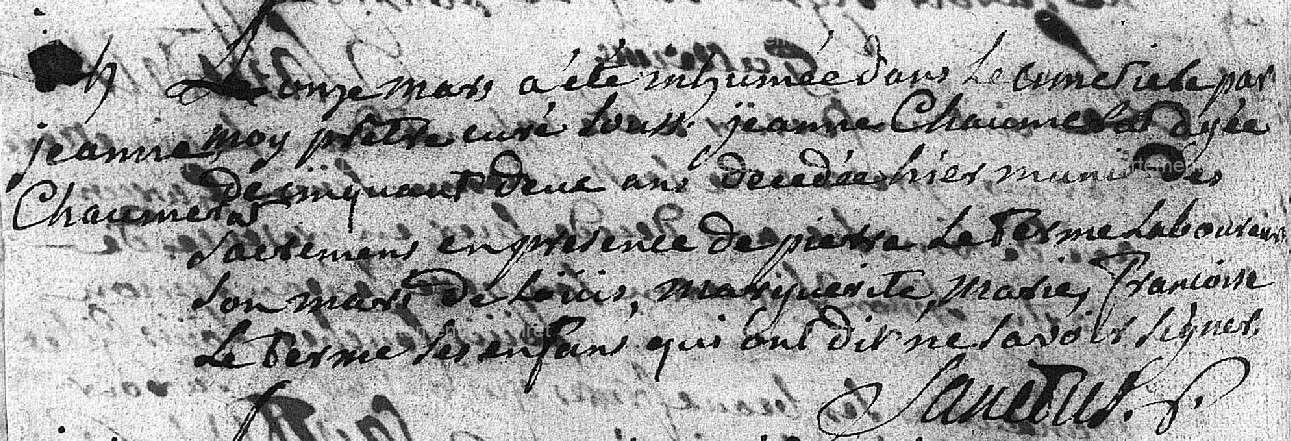 h
jeanne
Chaumerat
Le onze mars a été inhumée dans Le cimetiere par
moy prêtre curé souss. jeanne Chaumerat âgée
de cinquant deux ans decedée hier munie Des
sacremens en presence de pierre Leterme Laboureur
son mari de Loüis, marguerite, marie, francoise
Leterme ses enfans qui ont dit ne savoir signer.